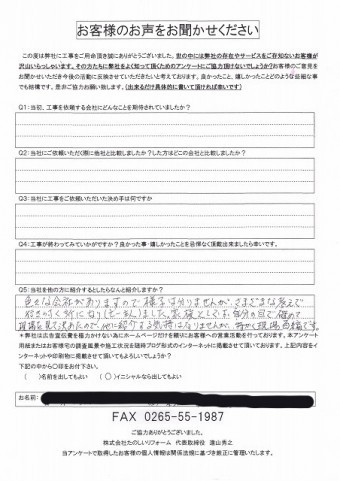 お客様のお声をお聞かせください
この度は弊社に工事をご用命頂き誠にありがとうございました。世の中には弊社の存在やサービスをご存知ないお客様が
沢山いらっしゃいます。その方たちに弊社をよく知って頂くためのアンケートにご協力頂けないでしょうか?お客様のご意見を
お聞かせいただき今後の活動に反映させていただきたいと考えております。良かったこと、嬉しかったことのような些細な事
でも結構です。是非ご協力お願いします。(出来るだけ具体的に書いて頂ければ幸いです)
Q1:当初、工事を依頼する会社にどんなことを期待されていましたか?
Q2:当社にご依頼いただく際に他社と比較しましたか?した方はどこの会社と比較しましたか?
Q3:当社に工事をご依頼いただいた決め手は何ですか
Q4:工事が終わってみていかがですか?良かった事・嬉しかったことを忌憚なくご頂戴出来ましたら幸いです。
Q5:当社を他の方に紹介するとしたらなんと紹介しますか?
色々な会社がありますので様子は分りませんが、さまざまな考えで
ました。家族としても、自分の目で確めて
現場を見て決めたので、他に紹介する気持はなりませんが、
※弊社は広告宣伝費を極力かけないためにホームページだけを頼りにお客様への営業活動を行っております。本アンケート
用紙またはお客様宅の調査風景や施工状況を随時ブログ形式のインターネットに掲載させて頂いております。上記内容をイ
ンターネットや印刷物に掲載させて頂いてもよろしいでしょうか?
下記の中から〇印をお付下さい。
( )名前を出してもよい ( 〇 )イニシャルなら出してもよい
お名前:
FAX 0265-55-1987
ご協力ありがとうございました。
株式会社たのしいリフォーム 代表取締役 遠山秀之
当アンケートで取得したお客様の個人情報は関係法規に基づき厳正に管理いたします。